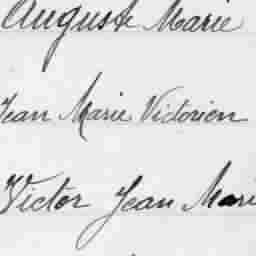 Auguste Marie
Jean Marie Victorien
Victor Jean Mari